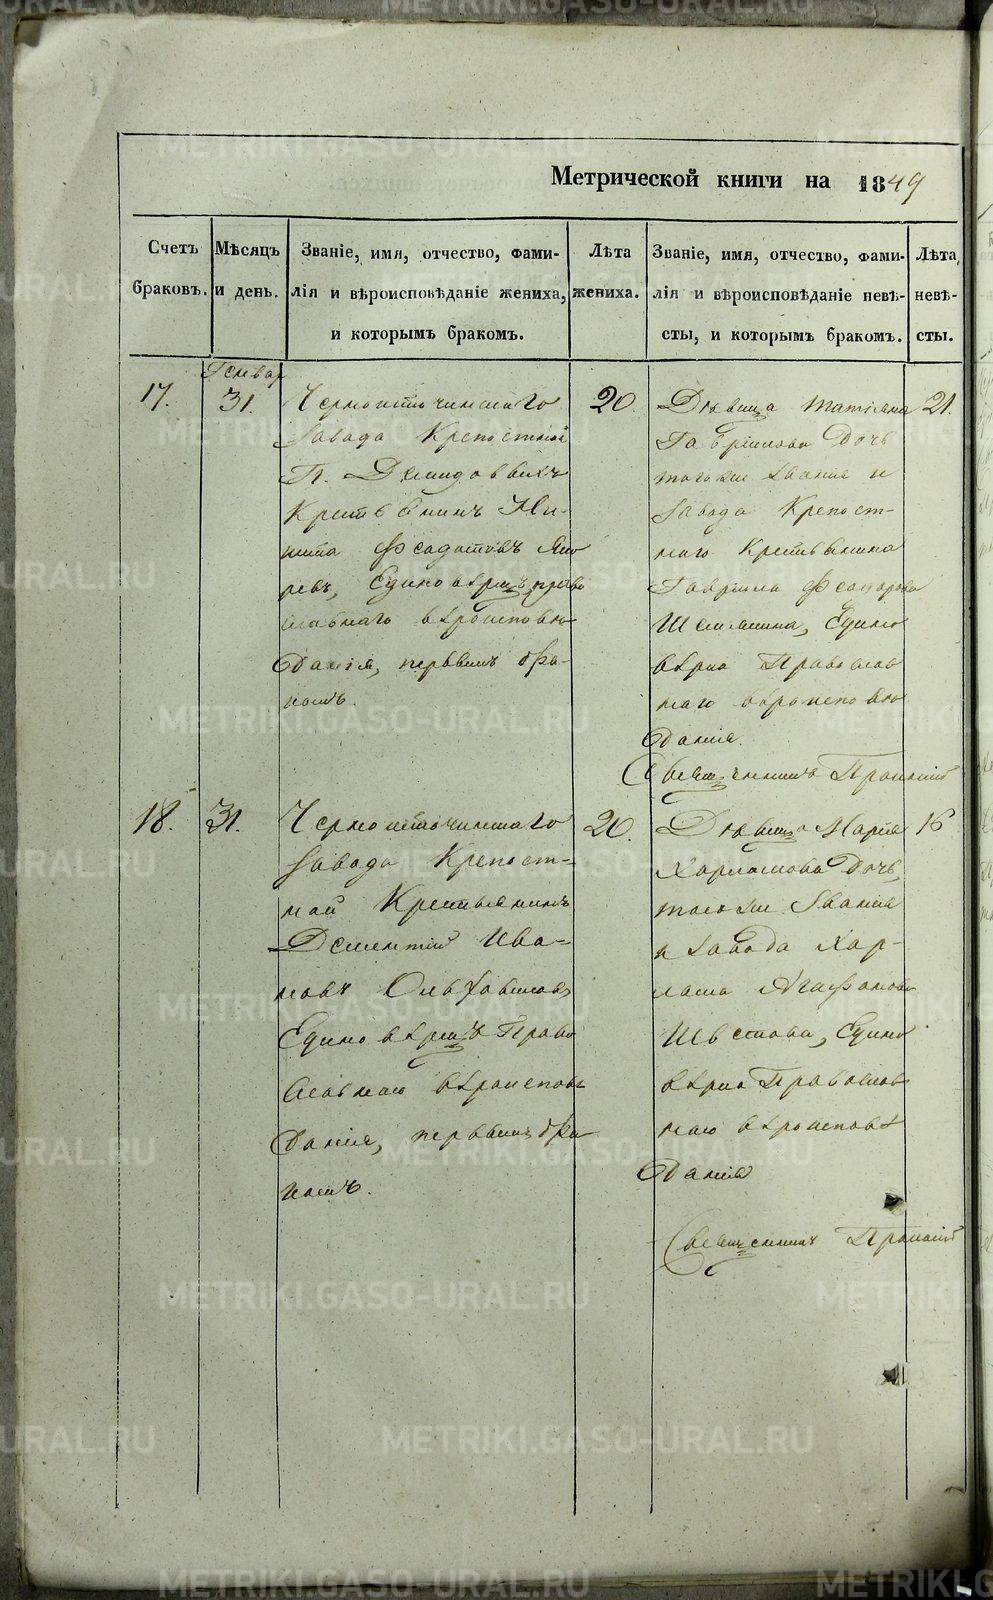 Метрической книги на 1849
Счетъ браковъ.
Мѣсяцъ и день.
Званіе, имя, отчество, фами-
лія и вѣроисповѣданіе жениха,
и которымъ бракомъ.
Лѣта жениха.
Званіе, имя, отчество, фами-
лія и вѣроисповѣданіе невѣ-
сты, и которымъ бракомъ.
Лѣта невѣ-
сты.
Генвар
17.
31.
Черноисточинскаго
Завода Крепостной
Гг. Демидовыхъ
Крестьянинъ Ни-
кита Федотовъ
Единовѣрч: право
славнаго вѣроисповѣ
данія, первымъ бра-
комъ.
20.
Дѣвица Татіяна
Гаврилова Дочь
тогоже званія и
Завода Крепост-
наго Крестьянина
Гаврила
Единов
вѣрча Православ
наго вѣроисповѣ
данія.
Священникъ
21.
18.
31.
Черноисточинскаго
Завода Крепост-
ной Крестьянинъ
Дементий Ива-
новъ
Единовѣрч: Право
славнаго вѣроисповѣ
данія, первымъ бра
комъ.
20.
Дѣвица Марія
Харлампова Дочь,
тогоже Званія
и Завода Хар-
лама Агафонова
Едино
вѣрча Православ
наго вѣроисповѣ
данія
Священникъ
16
METRIKI.GASO-URAL.RU